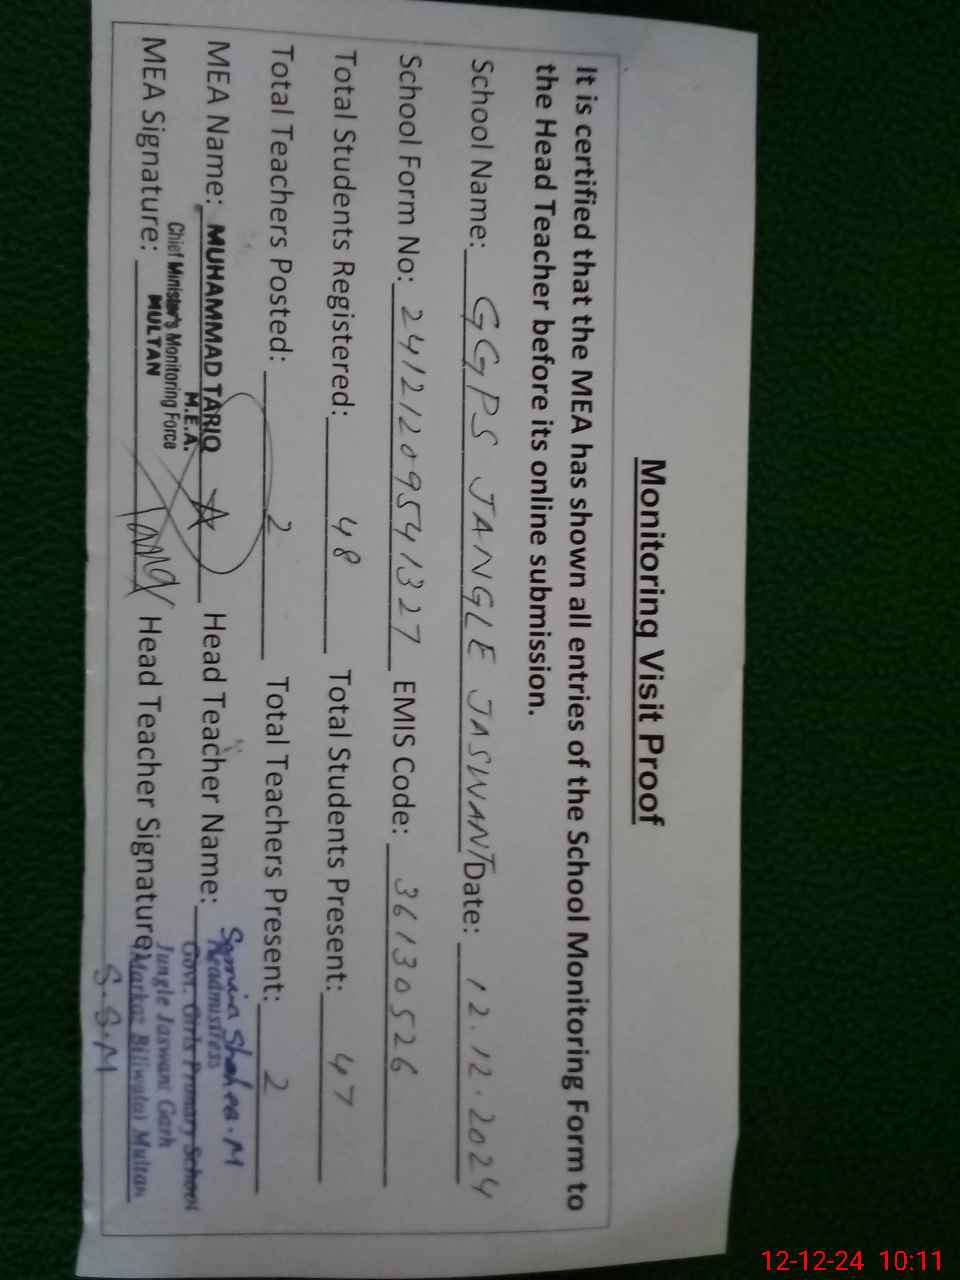 Monitoring Visit Proof
It is certified that the MEA has shown all entries of the School Monitoring Form to
the Head Teacher before its online submission.
School Name: GGPS JANGLE JASWANT Date: 12.12.2024
School Form No: 24121209541327 EMIS Code: 36130526
Total Students Registered: 48 Total Students Present: 47
Total Teachers Posted: 2 Total Teachers Present: 2
MEA Name: MUHAMMAD TARIQ Head Teacher Name:
M.E.A.
Chief Minister's Monitoring Force
MULTAN
Headmistress
Govt. Girls Primary School
Jungle Jaswant Garh
MEA Signature: Head Teacher Signature:
Multan
S.S.M
12-12-24 10:11